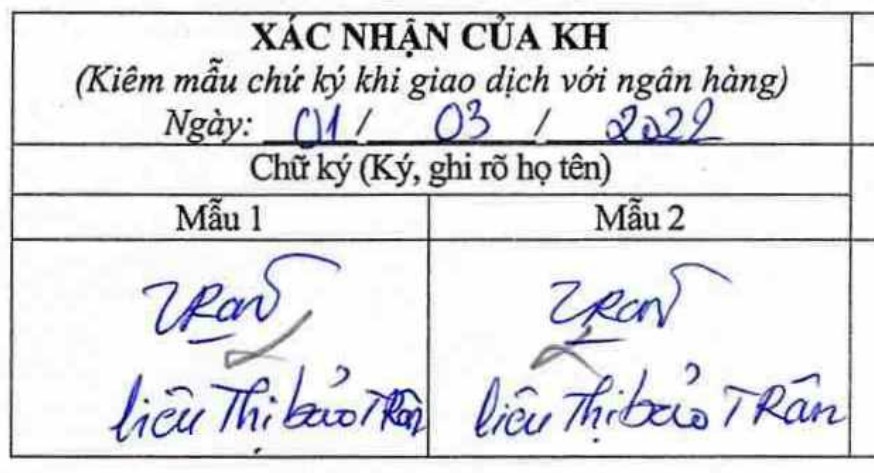 XÁC NHẬN CỦA KH
(Kiêm mẫu chứ ký khi giao dịch với ngân hàng)
Ngày: 01 / 03 / 2022
Chữ ký (Ký, ghi rõ họ tên)
Mẫu 1 Mẫu 2
TRân TRân
liêu Thị bảo TRân liêu Thị bảo TRân